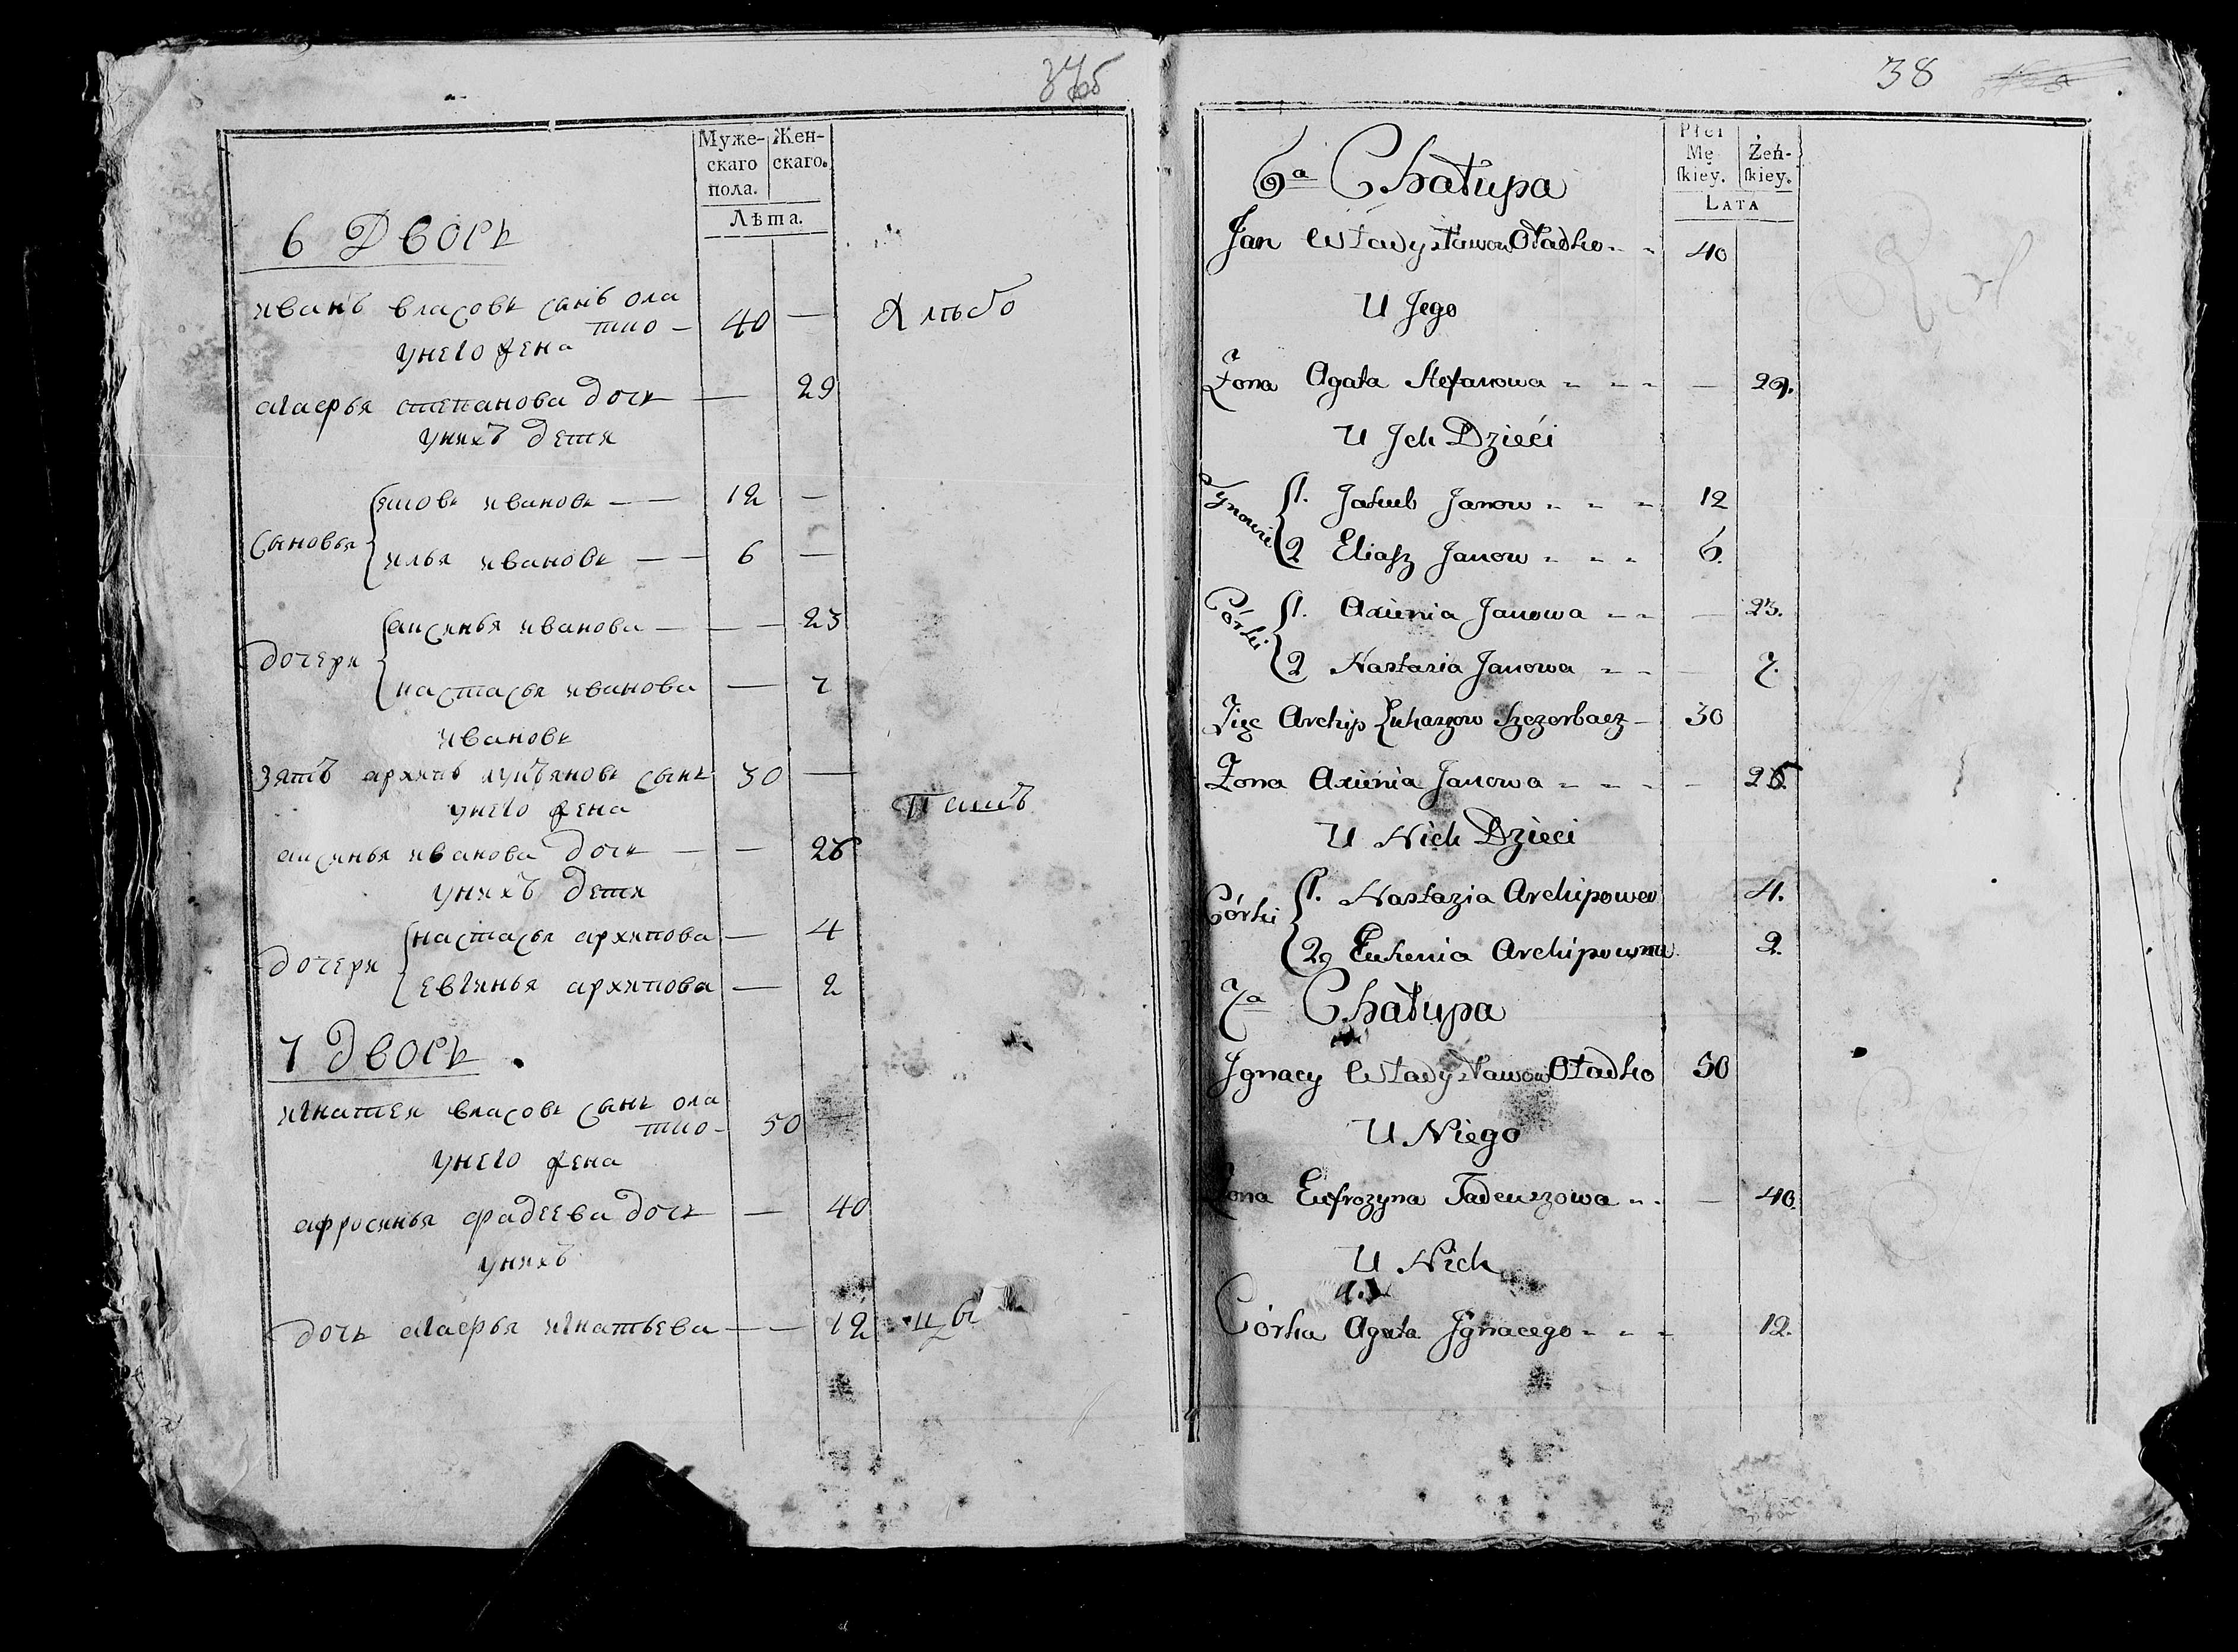 37об
Муже-
скаго
пола.
Жен-
скаго.
Лѣта.
6 Дворъ
иванъ власовъ сынъ ола
тко — 40 —
унего жена
агафья степанова дочь — 29
унихъ дети
Сыновья
яковъ ивановъ — — 12 —
илья ивановъ — — 6 —
дочери
аксинья иванова — — — 23
настасья иванова — 7
ивановъ
зять архипъ лукъяновъ сынъ 30 —
унего жена
аксинья иванова дочь — — 26
унихъ дети
дочери
настасья архипова — 4
евгинья архипова — 2
7 дворъ
игнатеи власовъ сынъ ола
тко — 50 —
унего жена
афросинья фадеева дочь — 40
унихъ
дочь агафья игнатьева — — 12
цы
38
Płci
Mę
ſkiey.
Żeń-
ſkiey.
LATA
6a Chałupa
Jan Władysławow Oładko 40
U Jego
Żona Agata Stefanowa — 29.
U Jch Dzieći
Synowie
1. Jakub Janow 12
2 Eliaſz Janow 6.
Córki
1. Axienia Janowa — 23.
2 Nastazia Janowa — 7.
Zięc Archip Łukaszow Szczerbacz — 30
Żona Axienia Janowa — 26.
U Nich Dzieci
Córki
1. Nastazia Archipowa 4.
2 Euhenia Archipowna 2.
7a Chałupa
Jgnacy Władysławow Oładko 50
U Niego
Żona Eufrozyna Tadeuszowa — 40.
U Nich
Córka Agata Jgnacego 12.